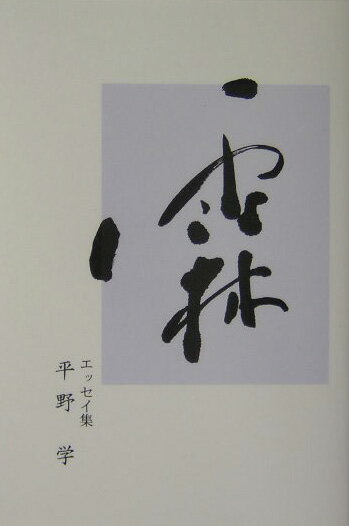 霖
エッセイ集
平野 学